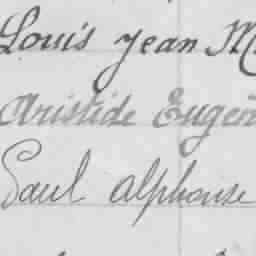 Louis Jean M
Aristide Eugèn
Paul Alphonse